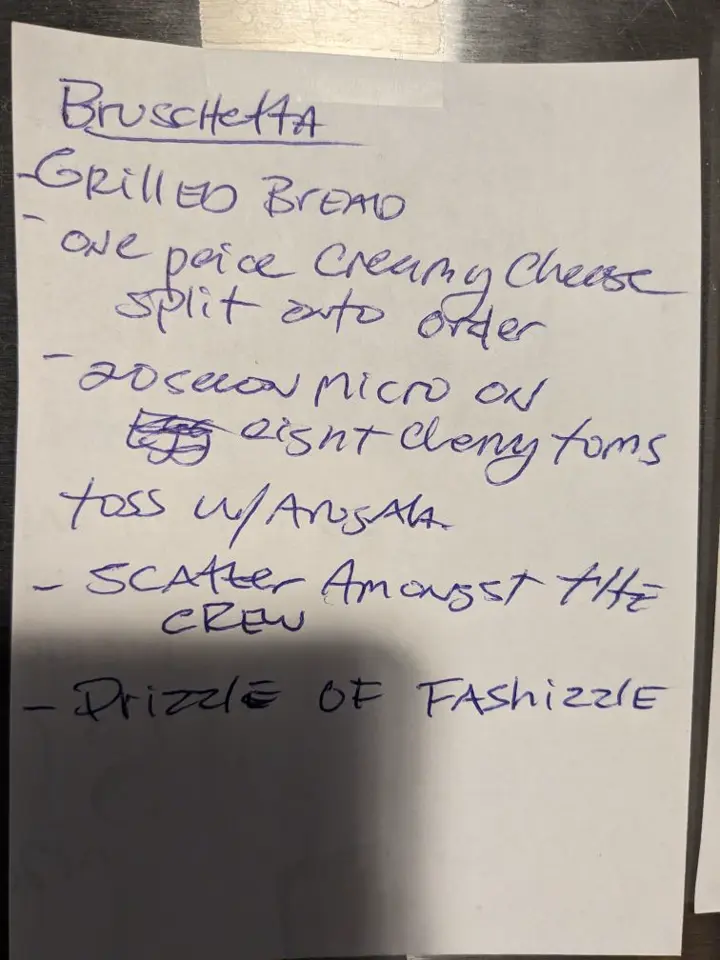 Bruschetta
- Grilled Bread
- one peice creamy cheese
split onto order
- 20 secon micro on
eight cherry toms
toss w/ Arugala
- Scatter Amongst the
crew
- Drizzle of Fashizzle